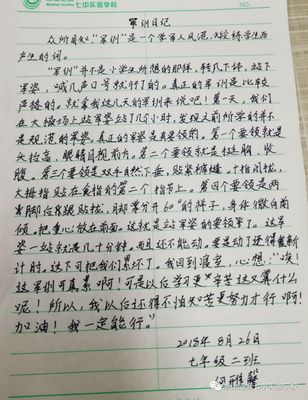 七中实验学校
NO.
军训日记
众所周知，“军训”是一个学军人风范，锻炼学生而
产生的词。
“军训”并不是小学生所想的那样，转几下体，站下
军姿，喊几声口号就行了的。真正的军训是比较
严格的。就拿我这几天的军训来说吧！第一天，我们
在大操场上站军姿站了几个小时，发现之前所学的并不
是规范的军姿。真正的军姿是有要领的。第一个要领就是
头抬高，眼睛目视前方。第二个要领就是挺胸，收
腹。第三个要领是双手自然下垂，贴紧裤缝，十指闭拢，
大拇指贴在食指的第二个指节上。第四个要领是两
脚后跟贴拢，脚掌分开60°的样子，身体微向前
倾，把重心放在前面。这就是站军姿的要领了。这军
姿一站就是几十分钟，而且还不能动。要是动了还得重新
计时。这下可把我们累坏了。我回到寝室，心想：“唉！
这军训可真累啊！可是以后学习更辛苦这又算什么
呢！所以，我以后还得不怕吃苦更努力才行啊！
加油！我一定能行。”
2018年8月26日
七年级二班